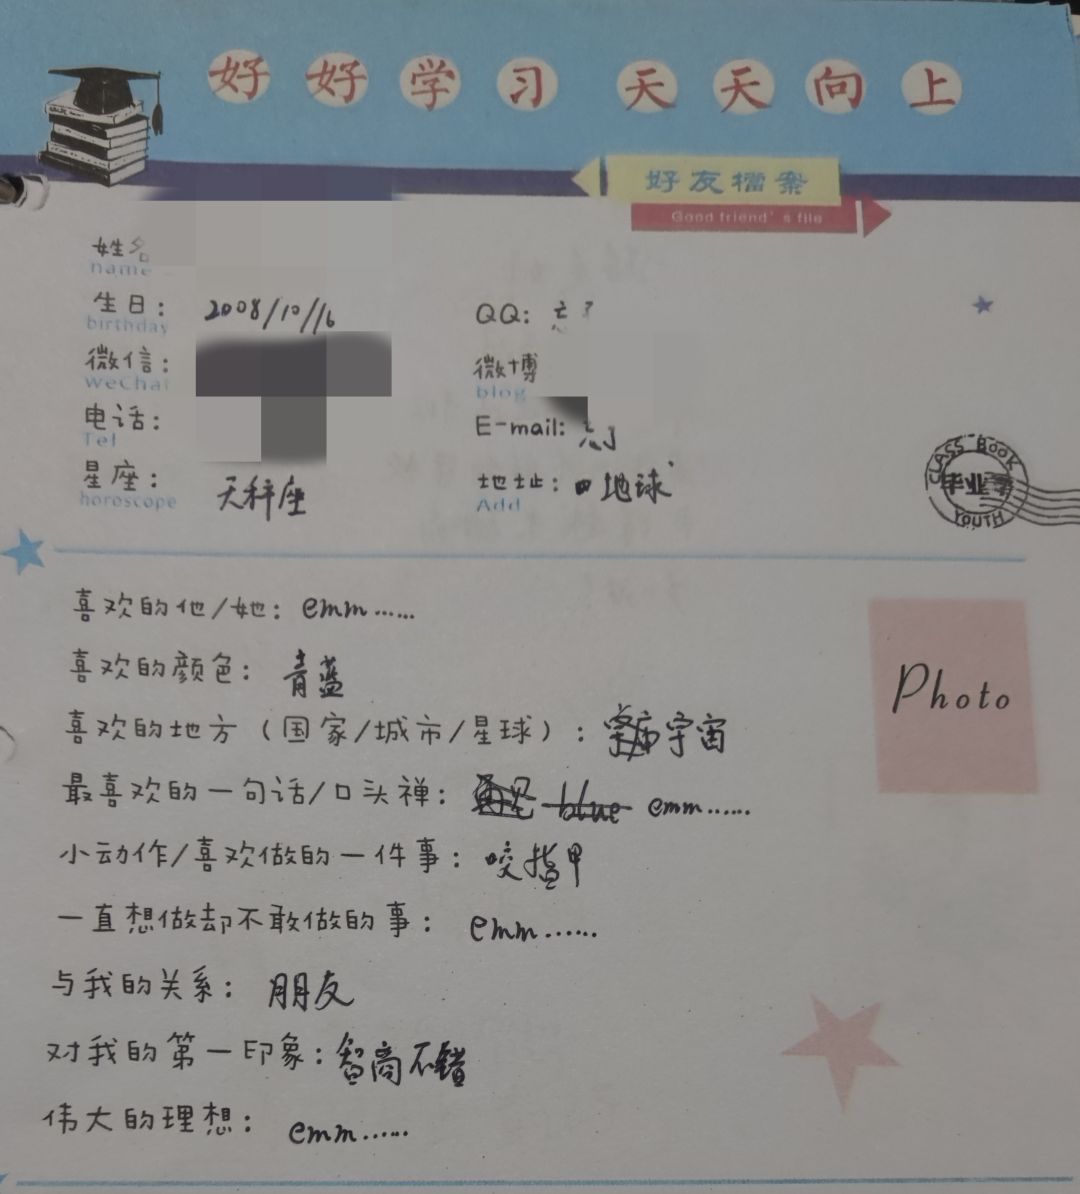 好好学习 天天向上
好友档案
Good friend's file
姓名
name
生日: 2008/10/16
birthday
QQ: 忘了
微信:
weChat
微博
blog
电话:
Tel
E-mail: 忘了
星座: 天秤座
horoscope
地址: 地球
Add
CLASS BOOK
毕业季
YOUTH
喜欢的他/她: emm……
喜欢的颜色: 青蓝
Photo
喜欢的地方(国家/城市/星球): 宇宙
最喜欢的一句话/口头禅: 再见 blue emm……
小动作/喜欢做的一件事: 咬指甲
一直想做却不敢做的事: emm……
与我的关系: 朋友
对我的第一印象: 智商不错
伟大的理想: emm……